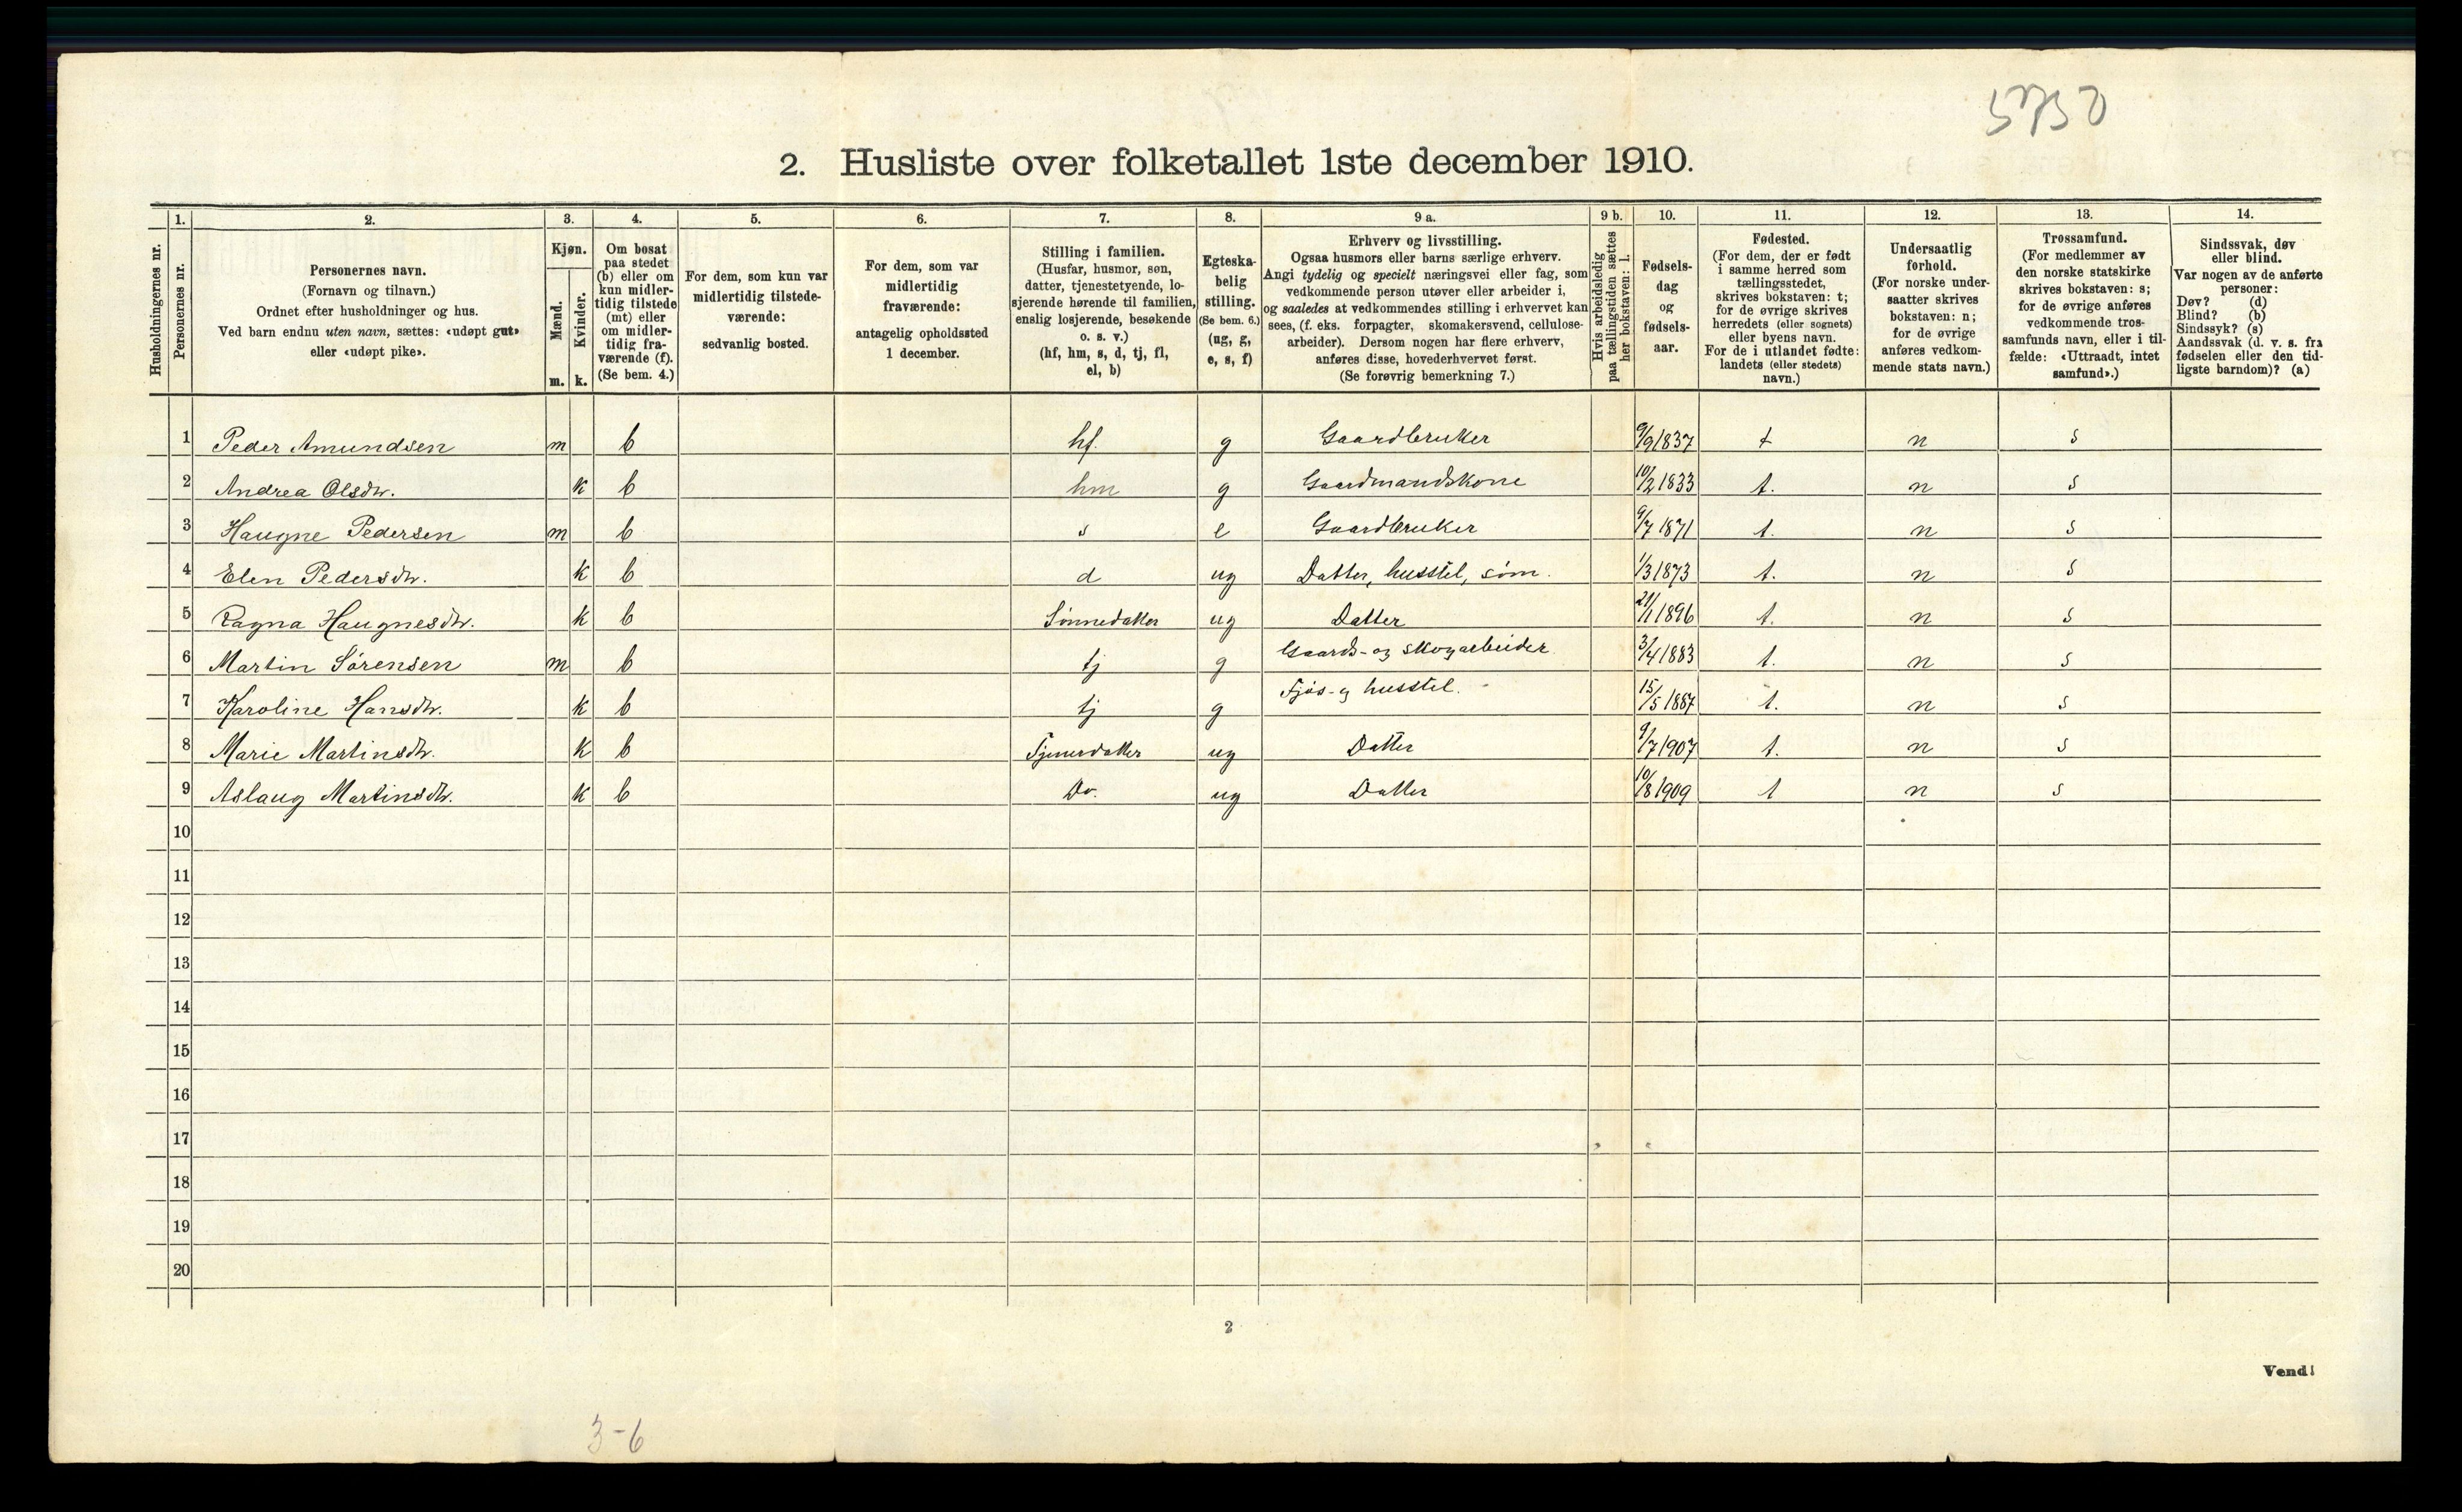 5750
2. Husliste over folketallet 1ste december 1910.
1. 2. 3. 4. 5. 6. 7. 8. 9 a. 9 b. 10. 11. 12. 13. 14.
Husholdningernes nr.
Personernes nr.
Personernes navn.
(Fornavn og tilnavn.)
Ordnet efter husholdninger og hus.
Ved barn endnu uten navn, sættes: «udøpt gut»
eller «udøpt pike».
Kjøn.
Mænd.
Kvinder.
m. k.
Om bosat
paa stedet
(b) eller om
kun midler-
tidig tilstede
(mt) eller
om midler-
tidig fra-
værende (f).
(Se bem. 4.)
For dem, som kun var
midlertidig tilstede-
værende:
sedvanlig bosted.
For dem, som var
midlertidig
fraværende:
antagelig opholdssted
1 december.
Stilling i familien.
(Husfar, husmor, søn,
datter, tjenestetyende, lo-
sjerende hørende til familien,
enslig losjerende, besøkende
o. s. v.)
(hf, hm, s, d, tj, fl,
el, b)
Egteska-
belig
stilling.
(Se bem. 6.)
(ug, g,
e, s, f)
Erhverv og livsstilling.
Ogsaa husmors eller barns særlige erhverv.
Angi tydelig og specielt næringsvei eller fag, som
vedkommende person utøver eller arbeider i,
og saaledes at vedkommendes stilling i erhvervet kan
sees, (f. eks. forpagter, skomakersvend, cellulose-
arbeider). Dersom nogen har flere erhverv,
anføres disse, hovederhvervet først.
(Se forøvrig bemerkning 7.)
Hvis arbeidsledig
paa tællingstiden sættes
her bokstaven: l.
Fødsels-
dag
og
fødsels-
aar.
Fødested.
(For dem, der er født
i samme herred som
tællingsstedet,
skrives bokstaven: t;
for de øvrige skrives
herredets (eller sognets)
eller byens navn.
For de i utlandet fødte:
landets (eller stedets)
navn.)
Undersaatlig
forhold.
(For norske under-
saatter skrives
bokstaven: n;
for de øvrige
anføres vedkom-
mende stats navn.)
Trossamfund.
(For medlemmer av
den norske statskirke
skrives bokstaven: s;
for de øvrige anføres
vedkommende tros-
samfunds navn, eller i til-
fælde: «Uttraadt, intet
samfund».)
Sindssvak, døv
eller blind.
Var nogen av de anførte
personer:
Døv? (d)
Blind? (b)
Sindssyk? (s)
Aandssvak (d. v. s. fra
fødselen eller den tid-
ligste barndom)? (a)
1 Peder Amundsen m b hf. g Gaardbruker 9/9 1837 t n s
2 Andrea Olsdtr. k b hm g Gaardmandskone 10/2 1833 t. n s
3 Haugne Pedersen m b s e Gaardbruker 9/7 1871 t. n s
4 Elen Pedersdtr. k b d ug Datter, husstel, søm. 1/3 1873 t. n s
5 Ragna Haugnesdtr. k b Sønnedatter ug Datter 21/11 1896 t. n s
6 Martin Sørensen m b tj g Gaards- og skogarbeider 3/4 1883 t. n s
7 Karoline Hansdtr. k b tj g Fjøs- og husstel. 15/5 1887 t. n s
8 Marie Martinsdtr. k b Tjenerdatter ug Datter 9/7 1907 t. n s
9 Aslaug Martinsdtr. k b Do. ug Datter 10/8 1909 t n s
10
11
12
13
14
15
16
17
18
19
20
2
Vend!
3-6